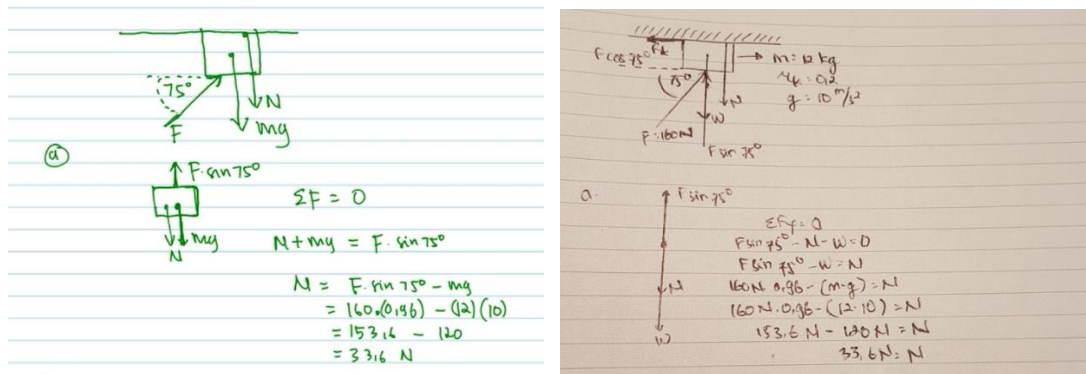 75°
F
N
mg
a
F. sin 75°
N
mg
ΣF = 0
N + mg = F. sin 75°
N = F. sin 75° - mg
= 160.(0,96) - (12)(10)
= 153,6 - 120
= 33,6 N
F cos 75°
Fk
75°
m = 12 kg
μk = 0,2
g = 10 m/s²
F = 160N
W
N
F sin 75°
a.
F sin 75°
N
W
ΣFy = 0
F sin 75° - N - W = 0
F sin 75° - W = N
160N. 0,96 - (m.g) = N
160N. 0,96 - (12.10) = N
153,6 N - 120 N = N
33,6 N = N